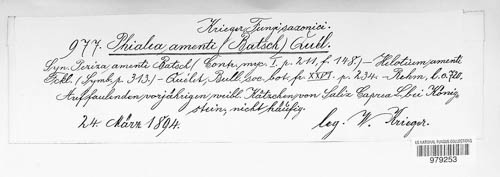 Krieger, Fungi saxonici.
977. Phialea amenti (Batsch) Quél.
Syn. Peziza amenti Batsch (Cont. myc. I. p. 211, f. 148.) – Helotium amenti
Fckl. (Symb. p. 313.) – Quélet, Bull. soc. bot. fr. XXVI. p. 234. – Rehm, l. c. 720.
Auf faulenden vorjährigen weibl. Kätzchen von Salix Caprea L. bei König
stein, nicht häufig.
24. März 1894.
leg. W. Krieger.
US NATIONAL FUNGUS COLLECTIONS
979253